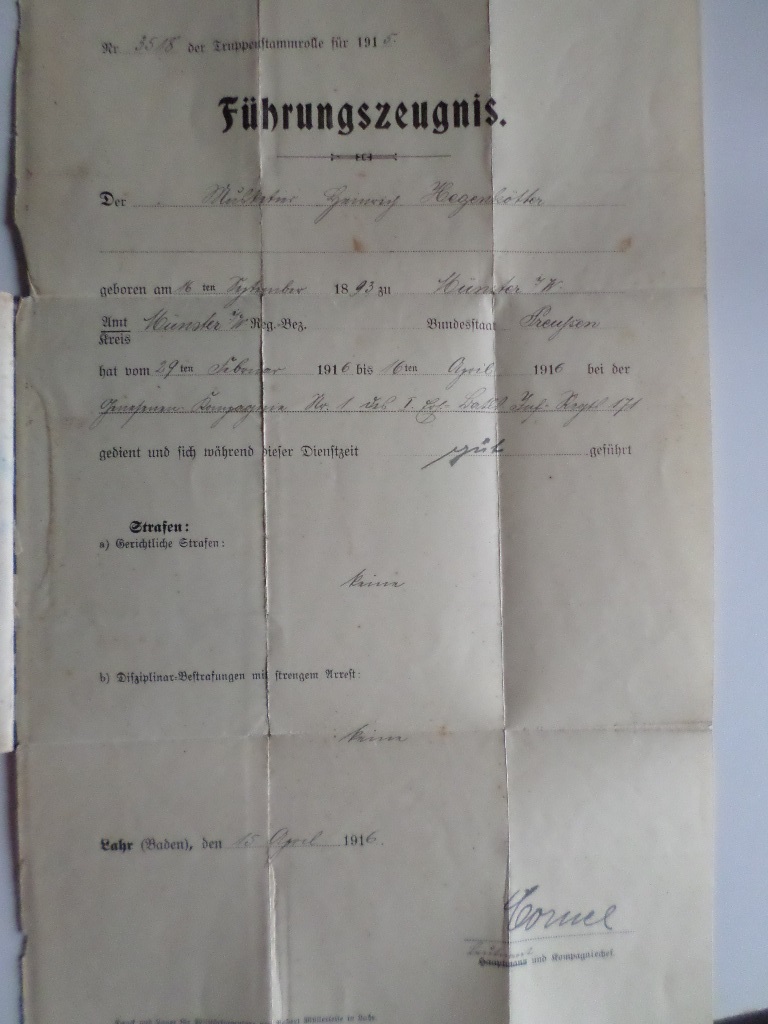 Nr 3518 der Truppenstammrolle für 1915.
Führungszeugnis.
Der Musketier Heinrich Hegenkötter
geboren am 16ten September 1893 zu Münster i/W.
Amt Münster i/W Reg.-Bez. Bundesstaat Preußen
Kreis
hat vom 29ten Februar 1916 bis 16ten April 1916 bei der
Genesenen Kompagnie Nr. 1 des I. Ers. Batl. Inf. Regts 171
gedient und sich während dieser Dienstzeit gut geführt
Strafen:
a) Gerichtliche Strafen:
keine
b) Disziplinar-Bestrafungen mit strengem Arrest:
keine
Lahr (Baden), den 15 April 1916.
Hauptmann und Kompagniechef